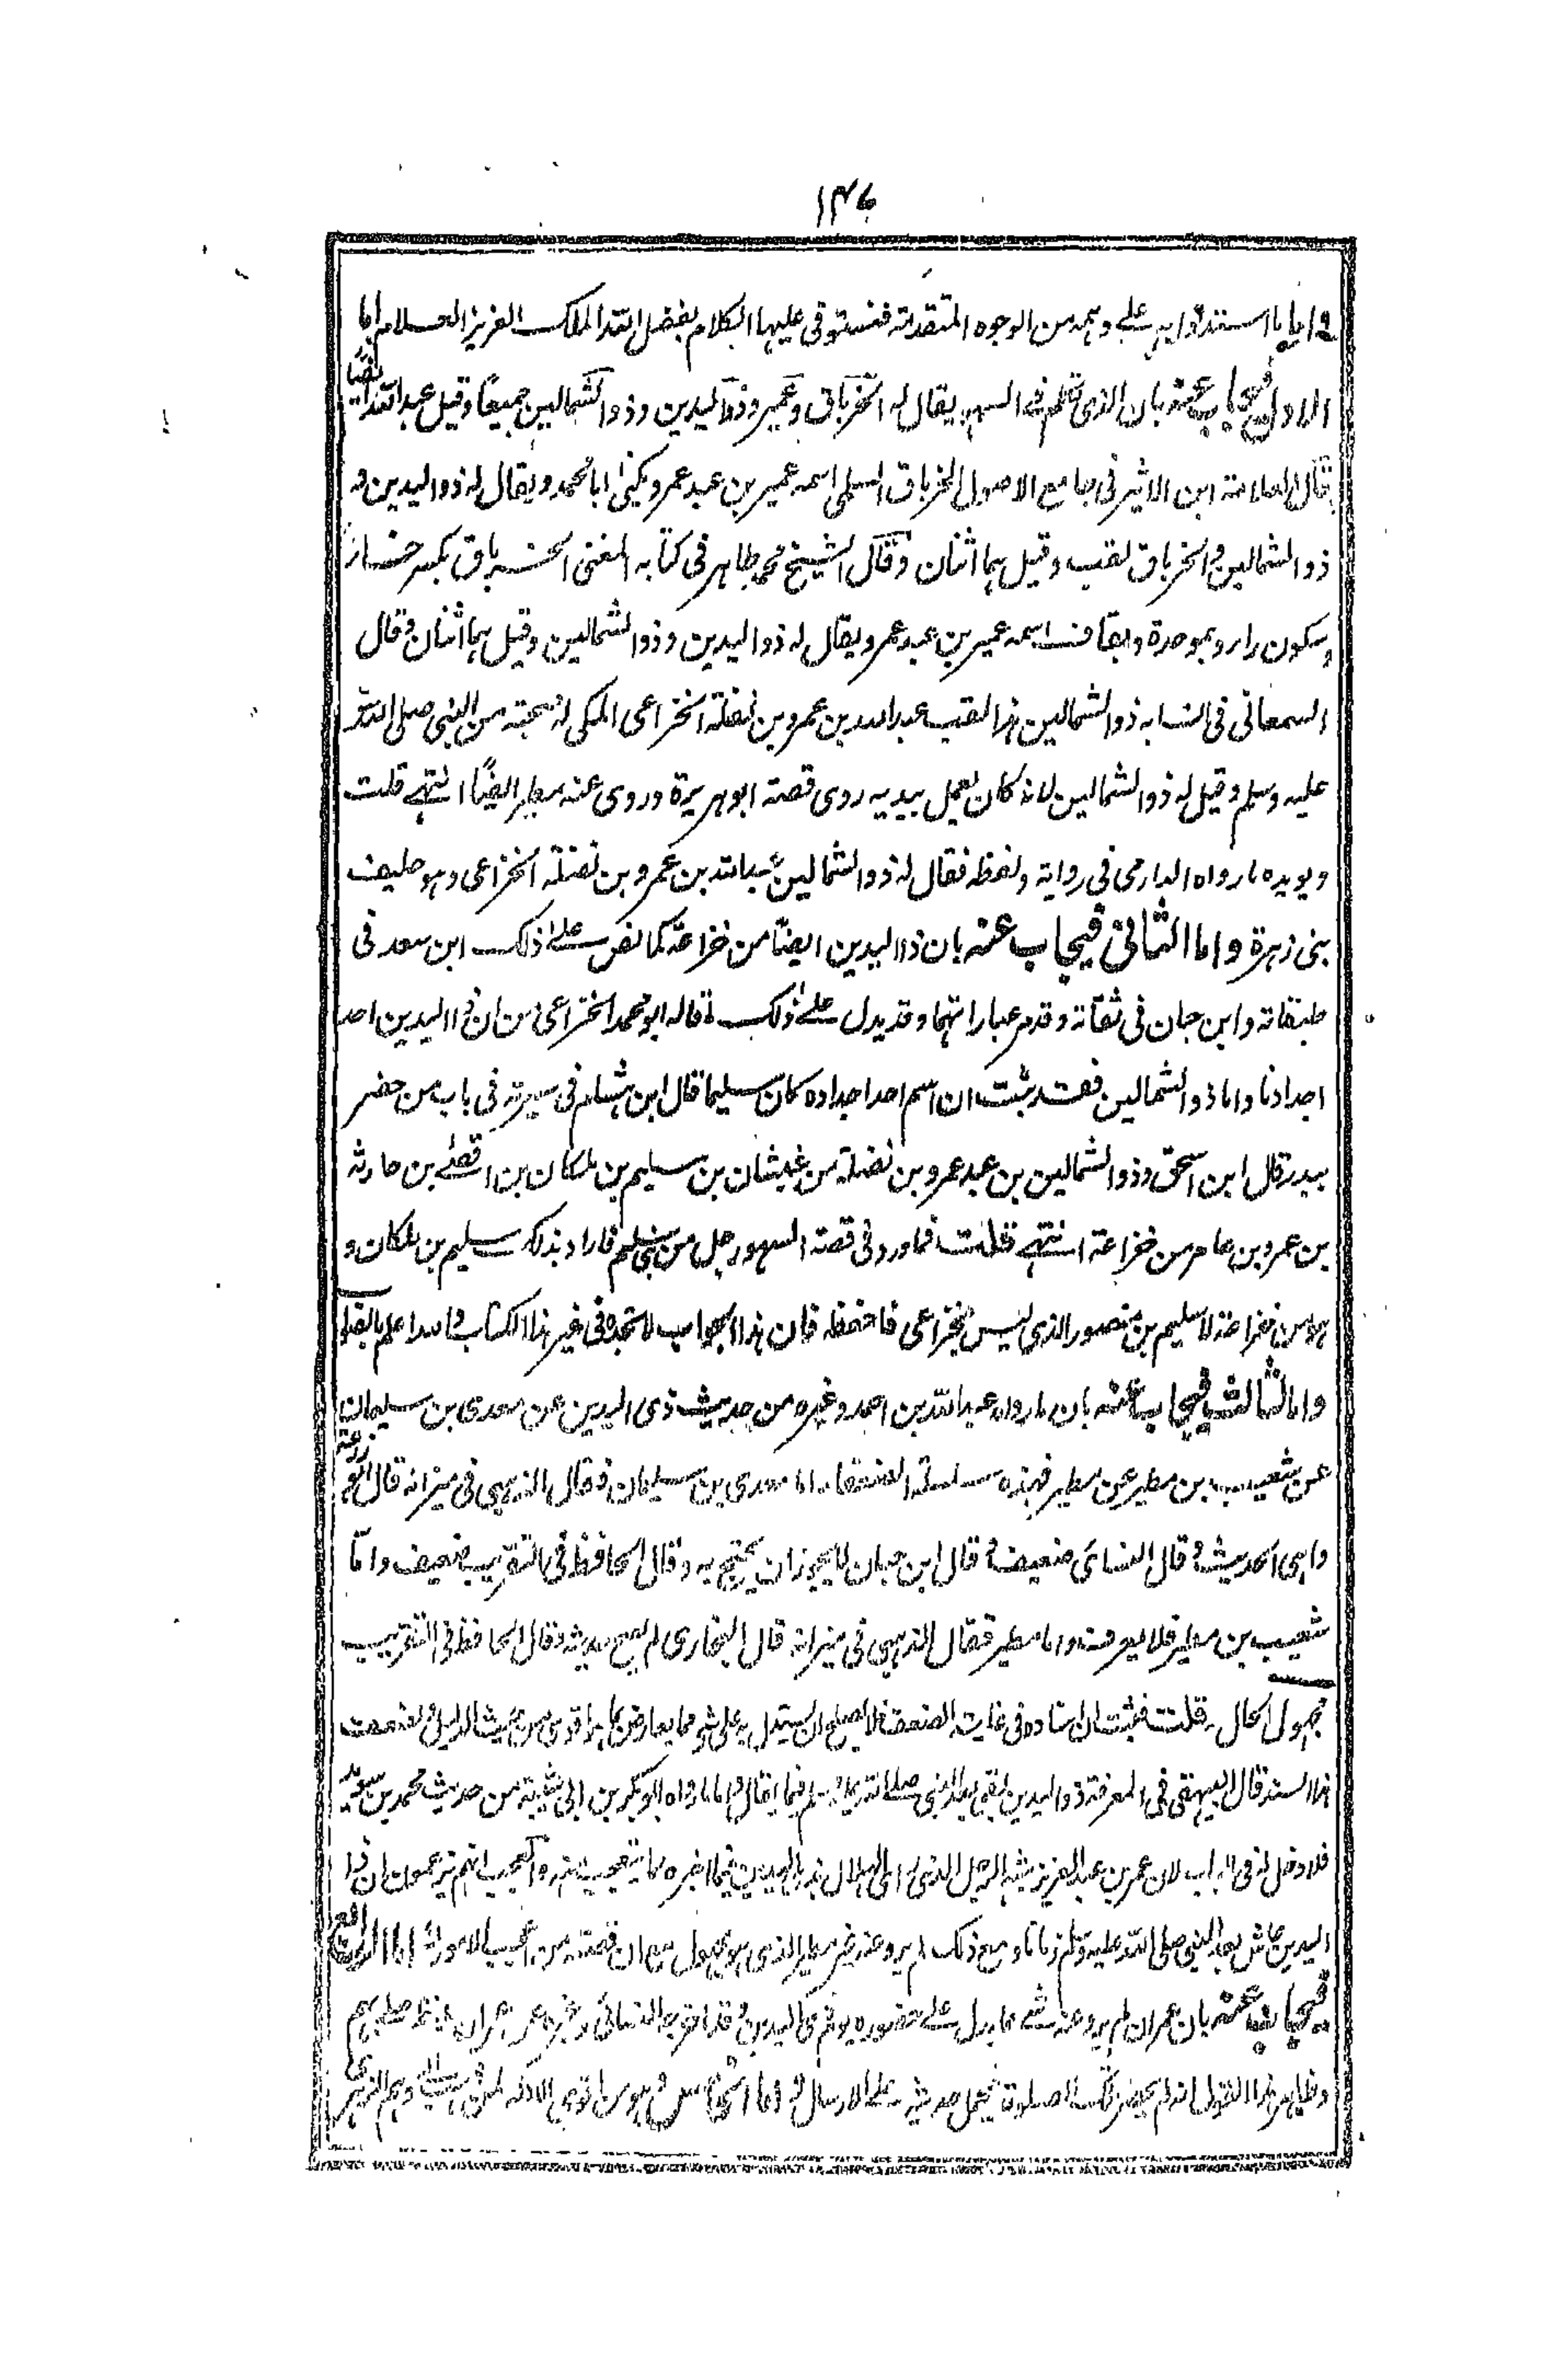 ١٣٦
واما ما استدلوا به على وهمه من الوجوه المتقدمة فنستوفي عليها الكلام بفضل الله الملك العزيز العلام اما
الاول فيجاب عنه بان الذي تكلم في السهو يقال له الخرباق وعمير وذو اليدين وذو الشمالين جميعًا وقيل عبد الله ايضًا
قال العلامة ابن الاثير في جامع الاصول الخرباق السلمي اسمه عمير بن عبد عمرو يكنى ابا محمد ويقال له ذو اليدين و
ذو الشمالين والخرباق لقب وقيل هما اثنان وقال الشيخ محمد طاهر في كتابه المغني الخرباق بكسر خاء
وسكون راء وبموحدة وبقاف اسمه عمير بن عبد عمرو يقال له ذو اليدين وذو الشمالين وقيل هما اثنان وقال
السمعاني في انسابه ذو الشمالين هذا لقب عبد الله بن عمرو بن نضلة الخزاعي المكي له صحبة من النبي صلى الله
عليه وسلم وقيل له ذو الشمالين لانه كان يعمل بيديه روى قصته ابو هريرة وروى عنه مطير ايضًا انتهى قلت
ويويده ما رواه الدارمي في رواية ولفظه فقال له ذو الشمالين عبد الله بن عمرو بن نضلة الخزاعي وهو حليف
بني زهرة واما الثاني فيجاب عنه بان ذا اليدين ايضًا من خزاعة كما نص على ذلك ابن سعد في
طبقاته وابن حبان في ثقاته وقد مر عباراتهما وقد يدل على ذلك ما قاله ابو محمد الخزاعي من ان ذا اليدين احد
اجدادنا واما ذو الشمالين فقد ثبت ان اسم احد اجداده كان سليما قال ابن هشام في سيرته في باب من حضر
ببدر قال ابن اسحق وذو الشمالين بن عبد عمرو بن نضلة من غبشان بن سليم بن ملكان بن افصى بن حارثة
بن عمرو بن عامر من خزاعة انتهى قلت فما ورد في قصة السهو رجل من بني سليم فاراد بذلك سليم بن ملكان و
هو من خزاعة لا سليم بن منصور الذي ليس بخزاعي فاحفظه فان هذا الجواب لا تجده في غير هذا الكتاب والله اعلم بالصواب
واما الثالث فيجاب عنه بان ما رواه عبد الله بن احمد وغيره من حديث ذي اليدين عن معدي بن سليمان
عن شعيب بن مطير عن مطير فهذه سلسلة الضعفاء اما معدي بن سليمان فقال الذهبي في ميزانه قال ابو زرعة
واهي الحديث وقال النسائي ضعيف وقال ابن حبان لا يجوز ان يحتج به وقال الحافظ في التقريب ضعيف واما
شعيب بن مطير فلا يعرف واما مطير فقال الذهبي في ميزانه قال البخاري لم يصح حديثه وقال الحافظ في التقريب
مجهول الحال قلت فثبت ان اسناده في غاية الضعف فلا يصلح ان يستدل به على شيء مما يعارض ما هو اقوى من حيث الدليل ولضعف
هذا السند قال البيهقي في المعرفة ذو اليدين بقي بعد النبي صلى الله عليه وسلم فيما يقال واما ما رواه ابو بكر بن ابي شيبة من حديث محمد بن سويد
فلا دخل له في الباب لان عمر بن عبد العزيز شبه الرجل الذي راى الهلال بذي اليدين فيما اخبره مما يتعجب منه والعجب انهم يزعمون ان ذا
اليدين عاش بعد النبي صلى الله عليه وسلم زمانا ومع ذلك لم يرو عنه غير مطير الذي هو مجهول مع ان قصته من اعجب الامور واما الرابع
فيجاب عنه بان عمران لم يرو عنه شيء مما يدل على حضوره يوم ذي اليدين وقد اخرجه النسائي وغيره عن عمران بلفظ صلى بهم
وظاهر هذا القول انه لم يحضر تلك الصلوة فيحمل حديثه على الارسال واما الخامس وهو من اقوى الادلة لمن ذهب الى وهم الزهري